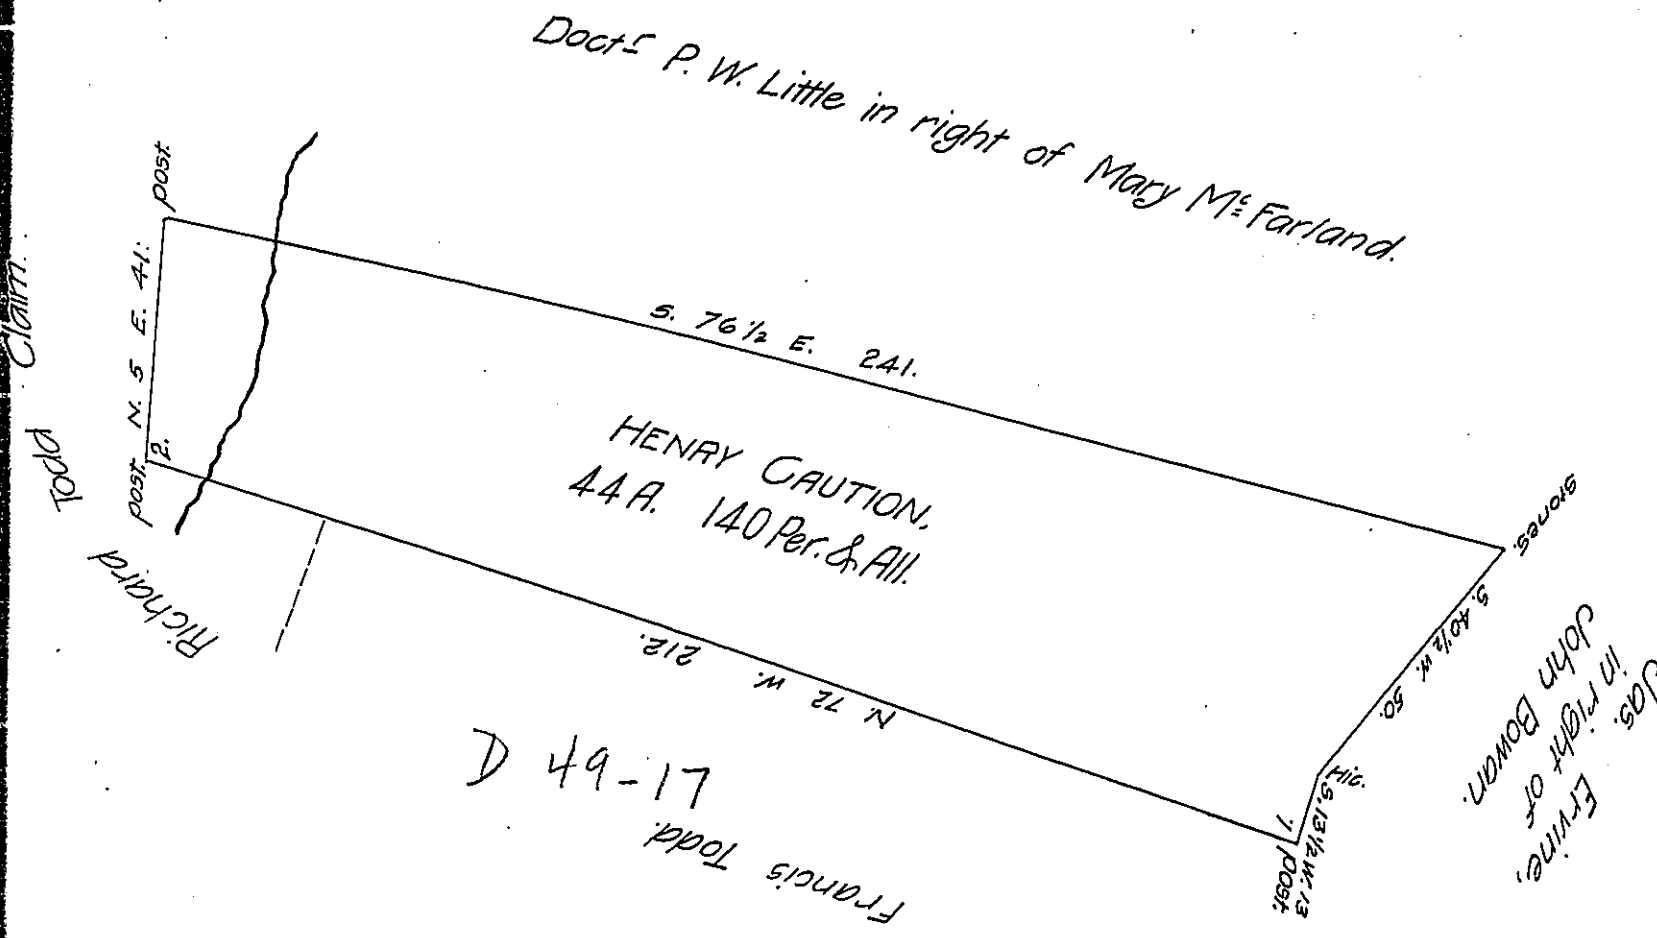 Doctr P. W. Little in right of Mary Mc Farland.
post.
N. 5 E. 41.
post.
2.
Claim.
Todd
Richard
S. 76 1/2 E. 241.
HENRY CAUTION.
44 A. 140 Per. & All.
N. 72 W. 212.
D 49-17
Francis Todd.
Stones.
S. 40 1/2 W. 50.
Hic.
S. 13 1/2 W. 13
1.
post.
Jas. Ervine,
in right of
John Bowan.